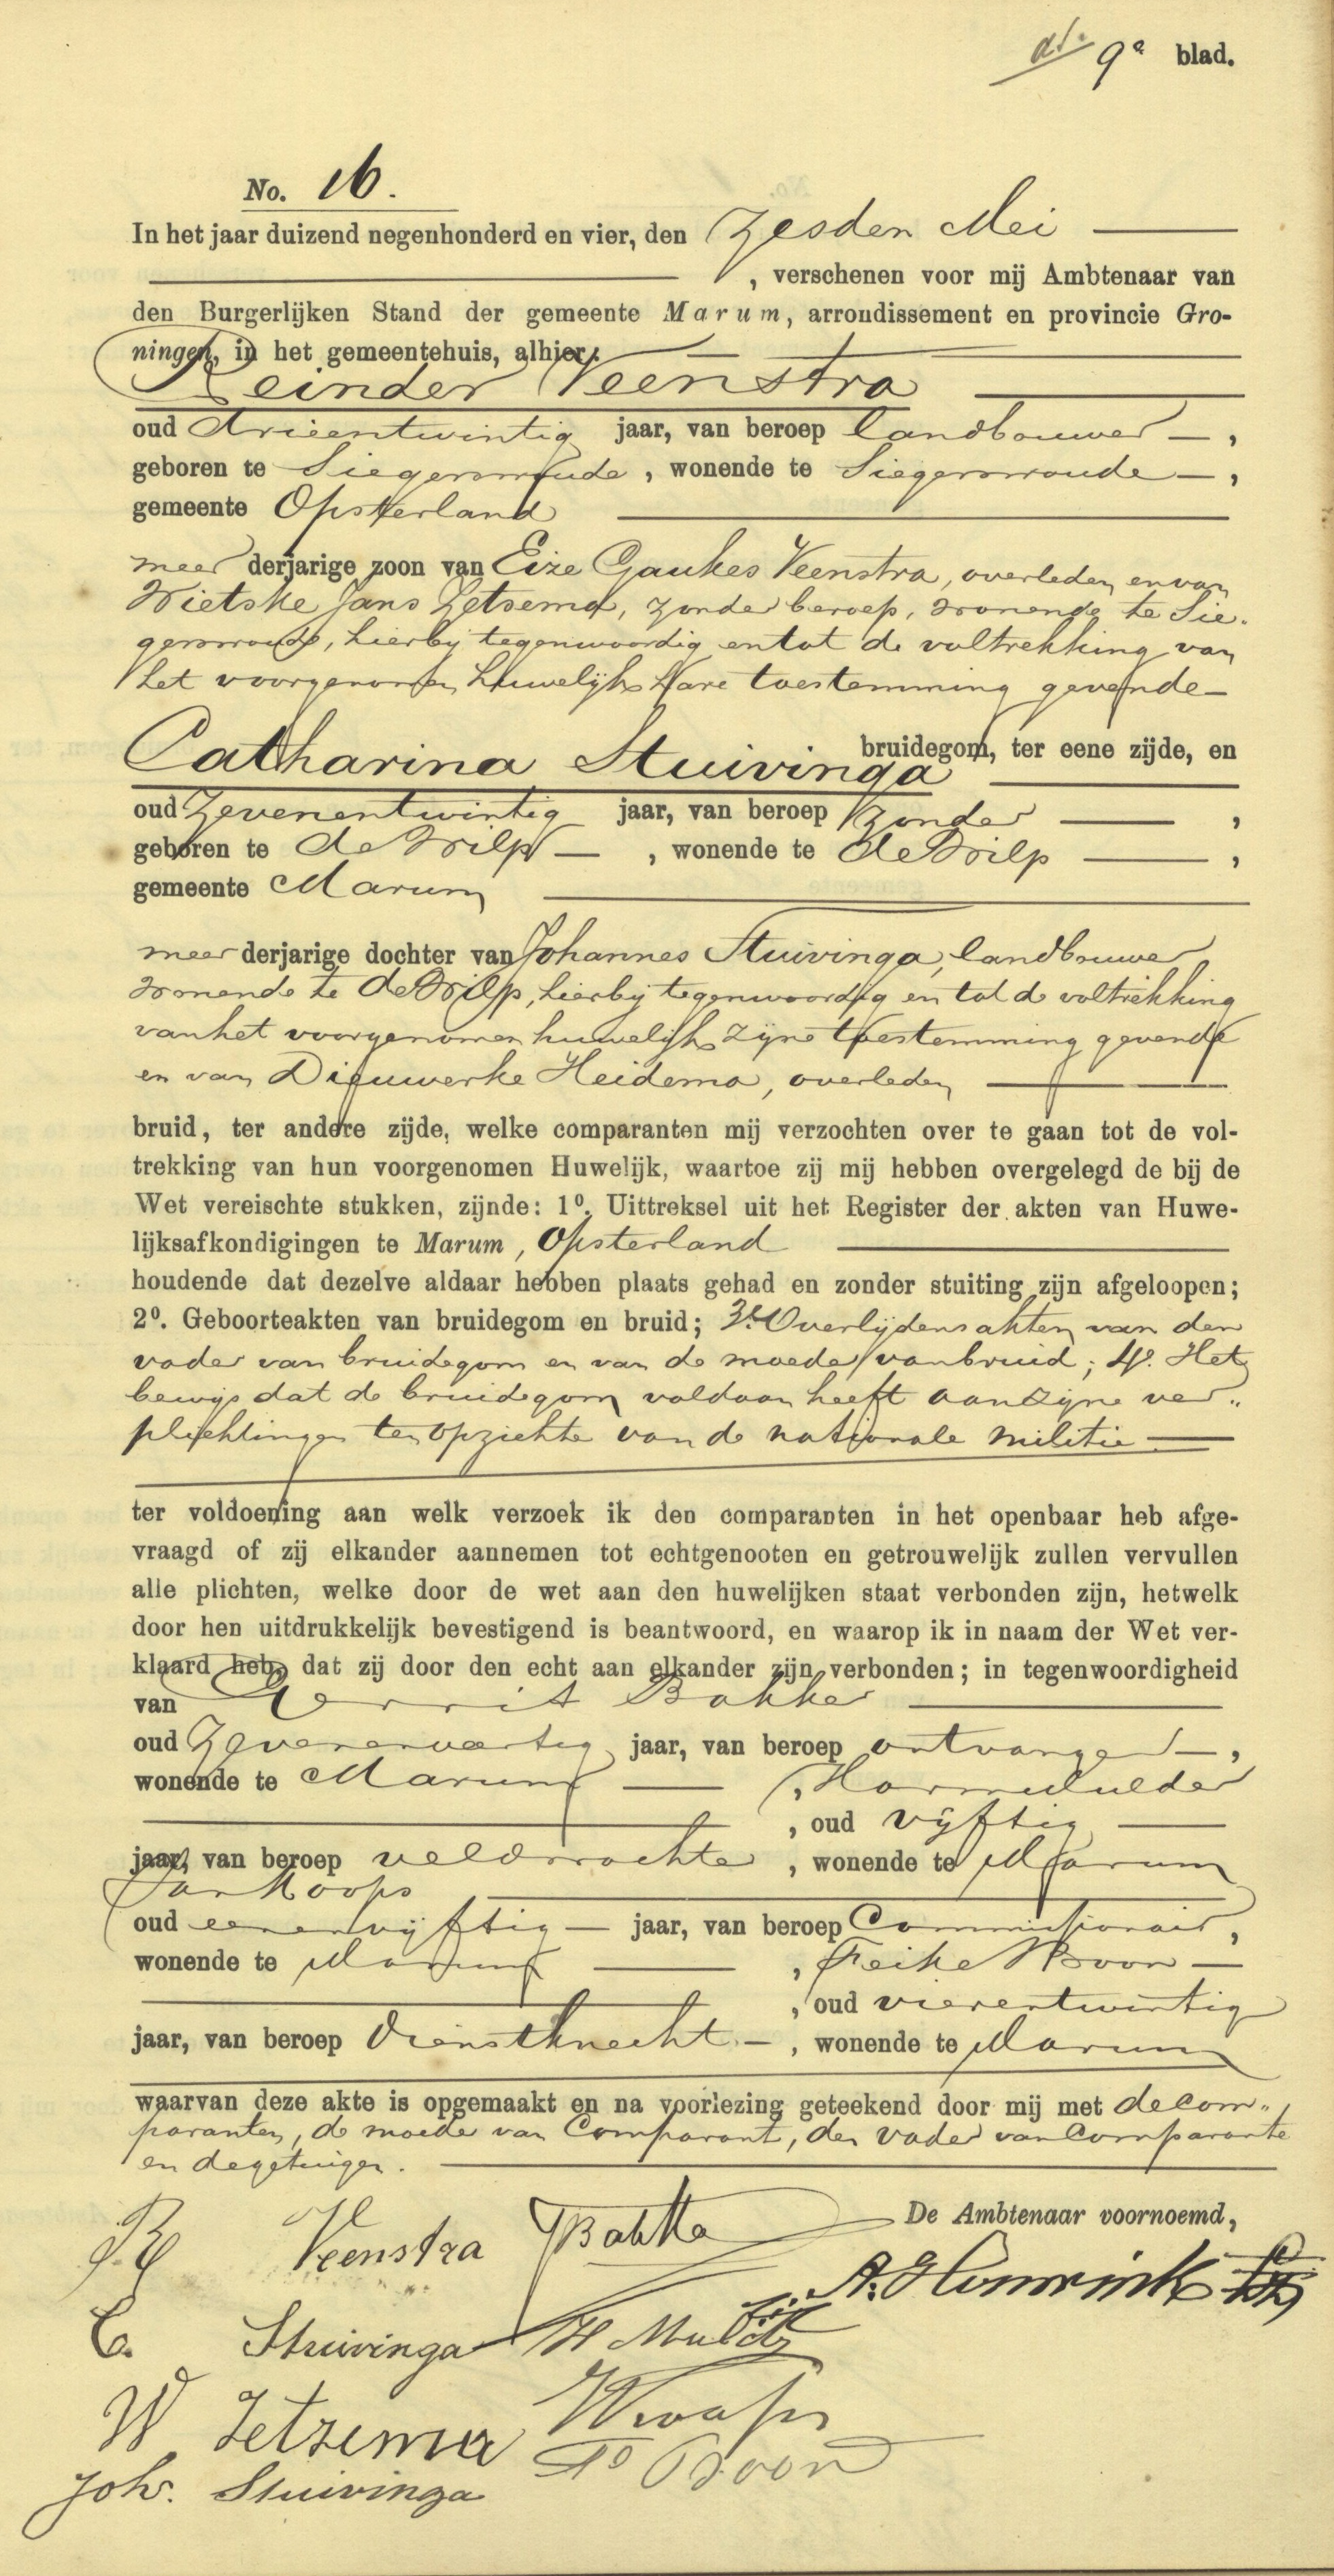 9e blad.
No. 16.
In het jaar duizend negenhonderd en vier, den zesden Mei
, verschenen voor mij Ambtenaar van
den Burgerlijken Stand der gemeente Marum, arrondissement en provincie Gro-
ningen, in het gemeentehuis, alhier:
Reinder Veenstra
oud drieentwintig jaar, van beroep landbouwer ,
geboren te Siegerswoude , wonende te Siegerswoude ,
gemeente Opsterland
meer derjarige zoon van Eize Gaukes Veenstra, overleden, en van
Wietske Jans Zetsema, zonder beroep, wonende te Sie-
gerswoude, hierbij tegenwoordig en tot de voltrekking van
het voorgenomen huwelijk hare toestemming gevende
bruidegom, ter eene zijde, en
Catharina Stuivinga
oud zevenentwintig jaar, van beroep zonder ,
geboren te de Wilp , wonende te de Wilp ,
gemeente Marum
meer derjarige dochter van Johannes Stuivinga, landbouwer
wonende te de Wilp, hierbij tegenwoordig en tot de voltrekking
van het voorgenomen huwelijk zijne toestemming gevende
en van Dieuwerke Heidema, overleden
bruid, ter andere zijde, welke comparanten mij verzochten over te gaan tot de vol-
trekking van hun voorgenomen Huwelijk, waartoe zij mij hebben overgelegd de bij de
Wet vereischte stukken, zijnde: 1º. Uittreksel uit het Register der akten van Huwe-
lijksafkondigingen te Marum, Opsterland
houdende dat dezelve aldaar hebben plaats gehad en zonder stuiting zijn afgeloopen;
2º. Geboorteakten van bruidegom en bruid; 3º. Overlijdensakten van den
vader van bruidegom en van de moeder van bruid; 4º. Het
bewijs dat de bruidegom voldaan heeft aan zijne ver-
plichtingen ten opzichte van de nationale militie
ter voldoening aan welk verzoek ik den comparanten in het openbaar heb afge-
vraagd of zij elkander aannemen tot echtgenooten en getrouwelijk zullen vervullen
alle plichten, welke door de wet aan den huwelijken staat verbonden zijn, hetwelk
door hen uitdrukkelijk bevestigend is beantwoord, en waarop ik in naam der Wet ver-
klaard heb, dat zij door den echt aan elkander zijn verbonden; in tegenwoordigheid
van Gerrit Bakker
oud zevenenveertig jaar, van beroep ontvanger ,
wonende te Marum , Harm Mulder
, oud vijftig
jaar, van beroep veldwachter , wonende te Marum
Jan Koops
oud eenenvijftig jaar, van beroep Commissionair ,
wonende te Marum , Feike Boon
, oud vierentwintig
jaar, van beroep dienstknecht , wonende te Marum
waarvan deze akte is opgemaakt en na voorlezing geteekend door mij met de com-
paranten, de moeder van Comparant, den vader van Comparante
en de getuigen.
De Ambtenaar voornoemd,
R Veenstra GBakker
C. Stuivinga H Mulder
W Zetzema JKoops
Joh. Stuivinga F Boon